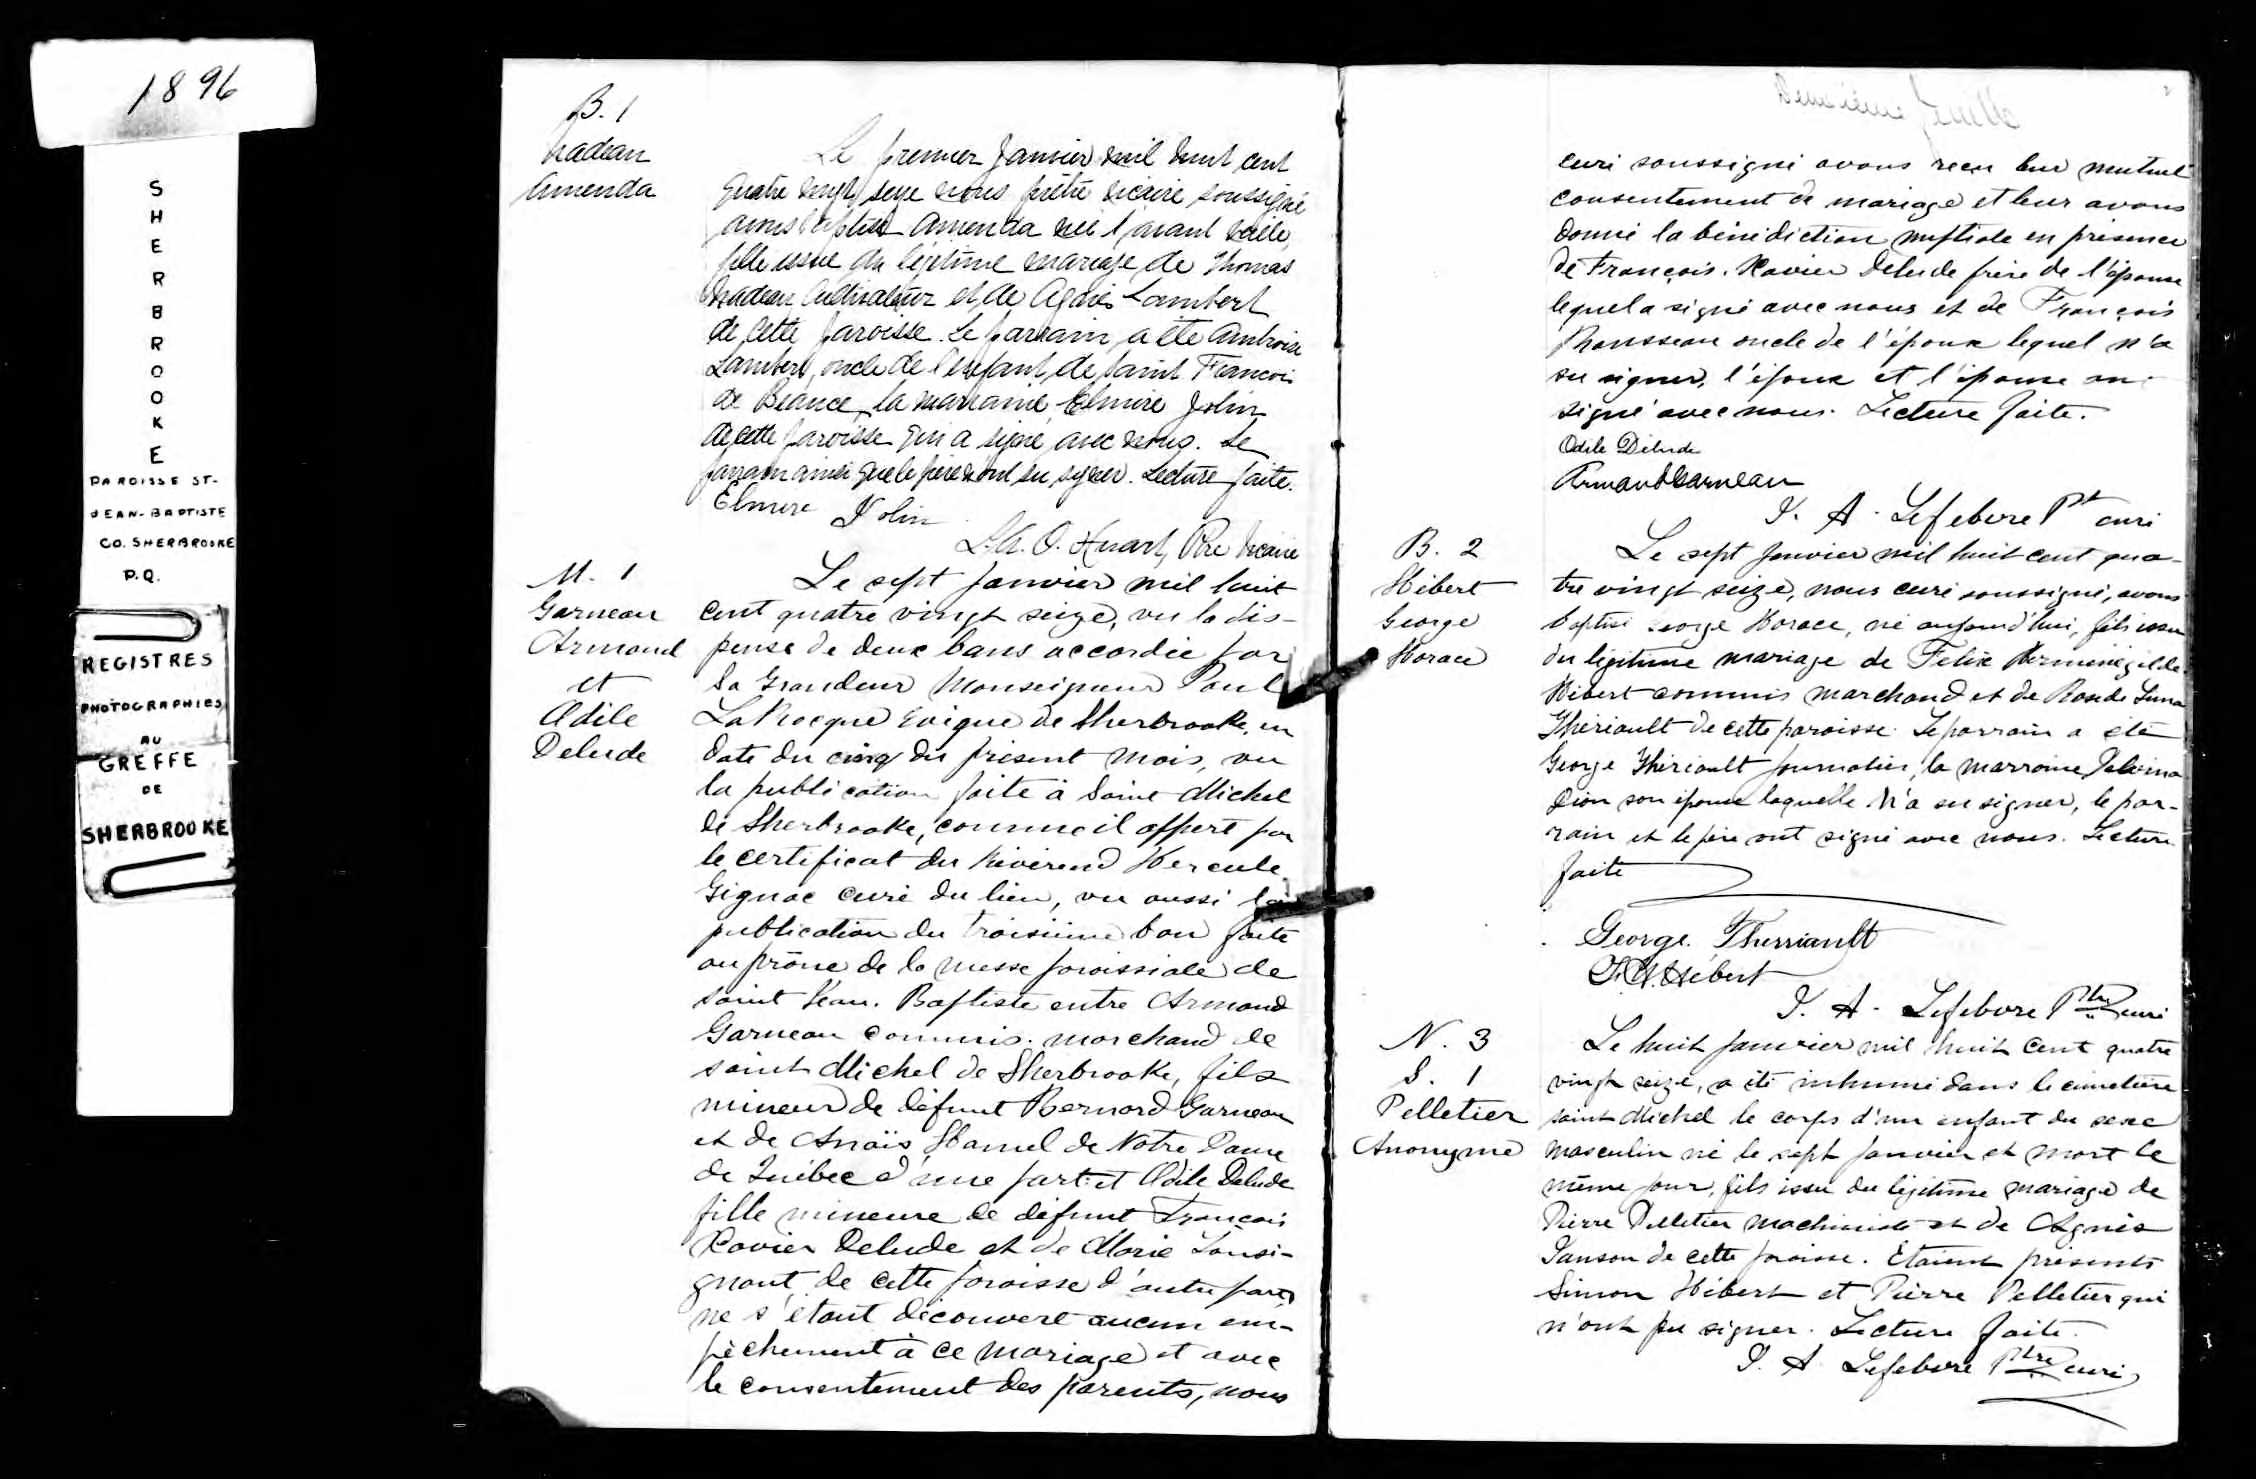 1896
S
H
E
R
B
R
O
O
K
E
PAROISSE ST-
JEAN-BAPTISTE
CO. SHERBROOKE
P.Q.
REGISTRES
PHOTOGRAPHIES
AU
GREFFE
DE
SHERBROOKE
B. 1
Nadeau
Amenda
Le premier Janvier mil huit cent
quatre vingt seize nous prêtre vicaire soussigné
avons baptisé Amenda née l'avant veille,
fille issue du légitime mariage de Thomas
Nadeau Cultivateur et de Agnès Lambert
de cette paroisse. Le parrain a été Ambroise
Lambert, oncle de l'enfant, de saint François
de Beauce, la marraine Elmire Jolin
de cette paroisse qui a signé avec nous. Le
parrain ainsi que le père n'ont su signer. Lecture faite.
Elmire Jolin
O. Huart, Ptre Vicaire
M. 1
Garneau
Armand
et
Odile
Delude
Le sept Janvier mil huit
cent quatre vingt seize, vu la dis-
pense de deux bans accordée par
Sa Grandeur Monseigneur Paul
LaRocque Evêque de Sherbrooke, en
date du cinq du présent mois, vu
la publication faite à Saint Michel
de Sherbrooke, comme il appert par
le certificat du Révérend Hercule
Gignac curé du lieu, vu aussi la
publication du troisième ban faite
au prône de la messe paroissiale de
saint Jean. Baptiste entre Armand
Garneau commis. marchand de
saint Michel de Sherbrooke, fils
mineur de défunt Bernard Garneau
et de Anaïs Hamel de Notre Dame
de Québec d'une part et Odile Delude
fille mineure de défunt François
Xavier Delude et de Marie Lansi-
gnant de cette paroisse d'autre part,
ne s'étant découvert aucun em-
pêchement à ce mariage et avec
le consentement des parents, nous
Deuxième feuille
2
curé soussigné avons reçu leur mutuel
consentement de mariage et leur avons
donné la bénédiction nuptiale en présence
de François. Xavier Delude frère de l'épouse
lequel a signé avec nous et de François
Rousseau oncle de l'époux lequel n'a
su signer, l'époux et l'épouse ont
signé avec nous. Lecture faite.
Odile Delude
Armand Garneau
J. A. Lefebvre Pt curé
B. 2
Hébert
George
Horace
Le sept Janvier mil huit cent qua-
tre vingt seize, nous curé soussigné, avons
baptisé George Horace, né aujourd'hui, fils issu
du légitime mariage de Felix Herménégilde
Hébert commis marchand et de Rose de Lima
Thériault de cette paroisse. Le parrain a été
George Thériault journalier, la marraine Malvina
Dion son épouse laquelle n'a su signer, le par-
rain et le père ont signé avec nous. Lecture
faite
George. Therriault
F.H. Hébert
J. A. Lefebvre Ptre curé
N. 3
S. 1
Pelletier
Anonyme
Le huit Janvier mil huit cent quatre
vingt seize, a été inhumé dans le cimetière
saint Michel le corps d'un enfant du sexe
masculin né le sept Janvier et mort le
même jour, fils issu du légitime mariage de
Pierre Pelletier machiniste et de Agnès
Sanson de cette paroisse. Etaient présents
Simon Hébert et Pierre Pelletier qui
n'ont pu signer. Lecture faite.
J. A. Lefebvre Ptre curé